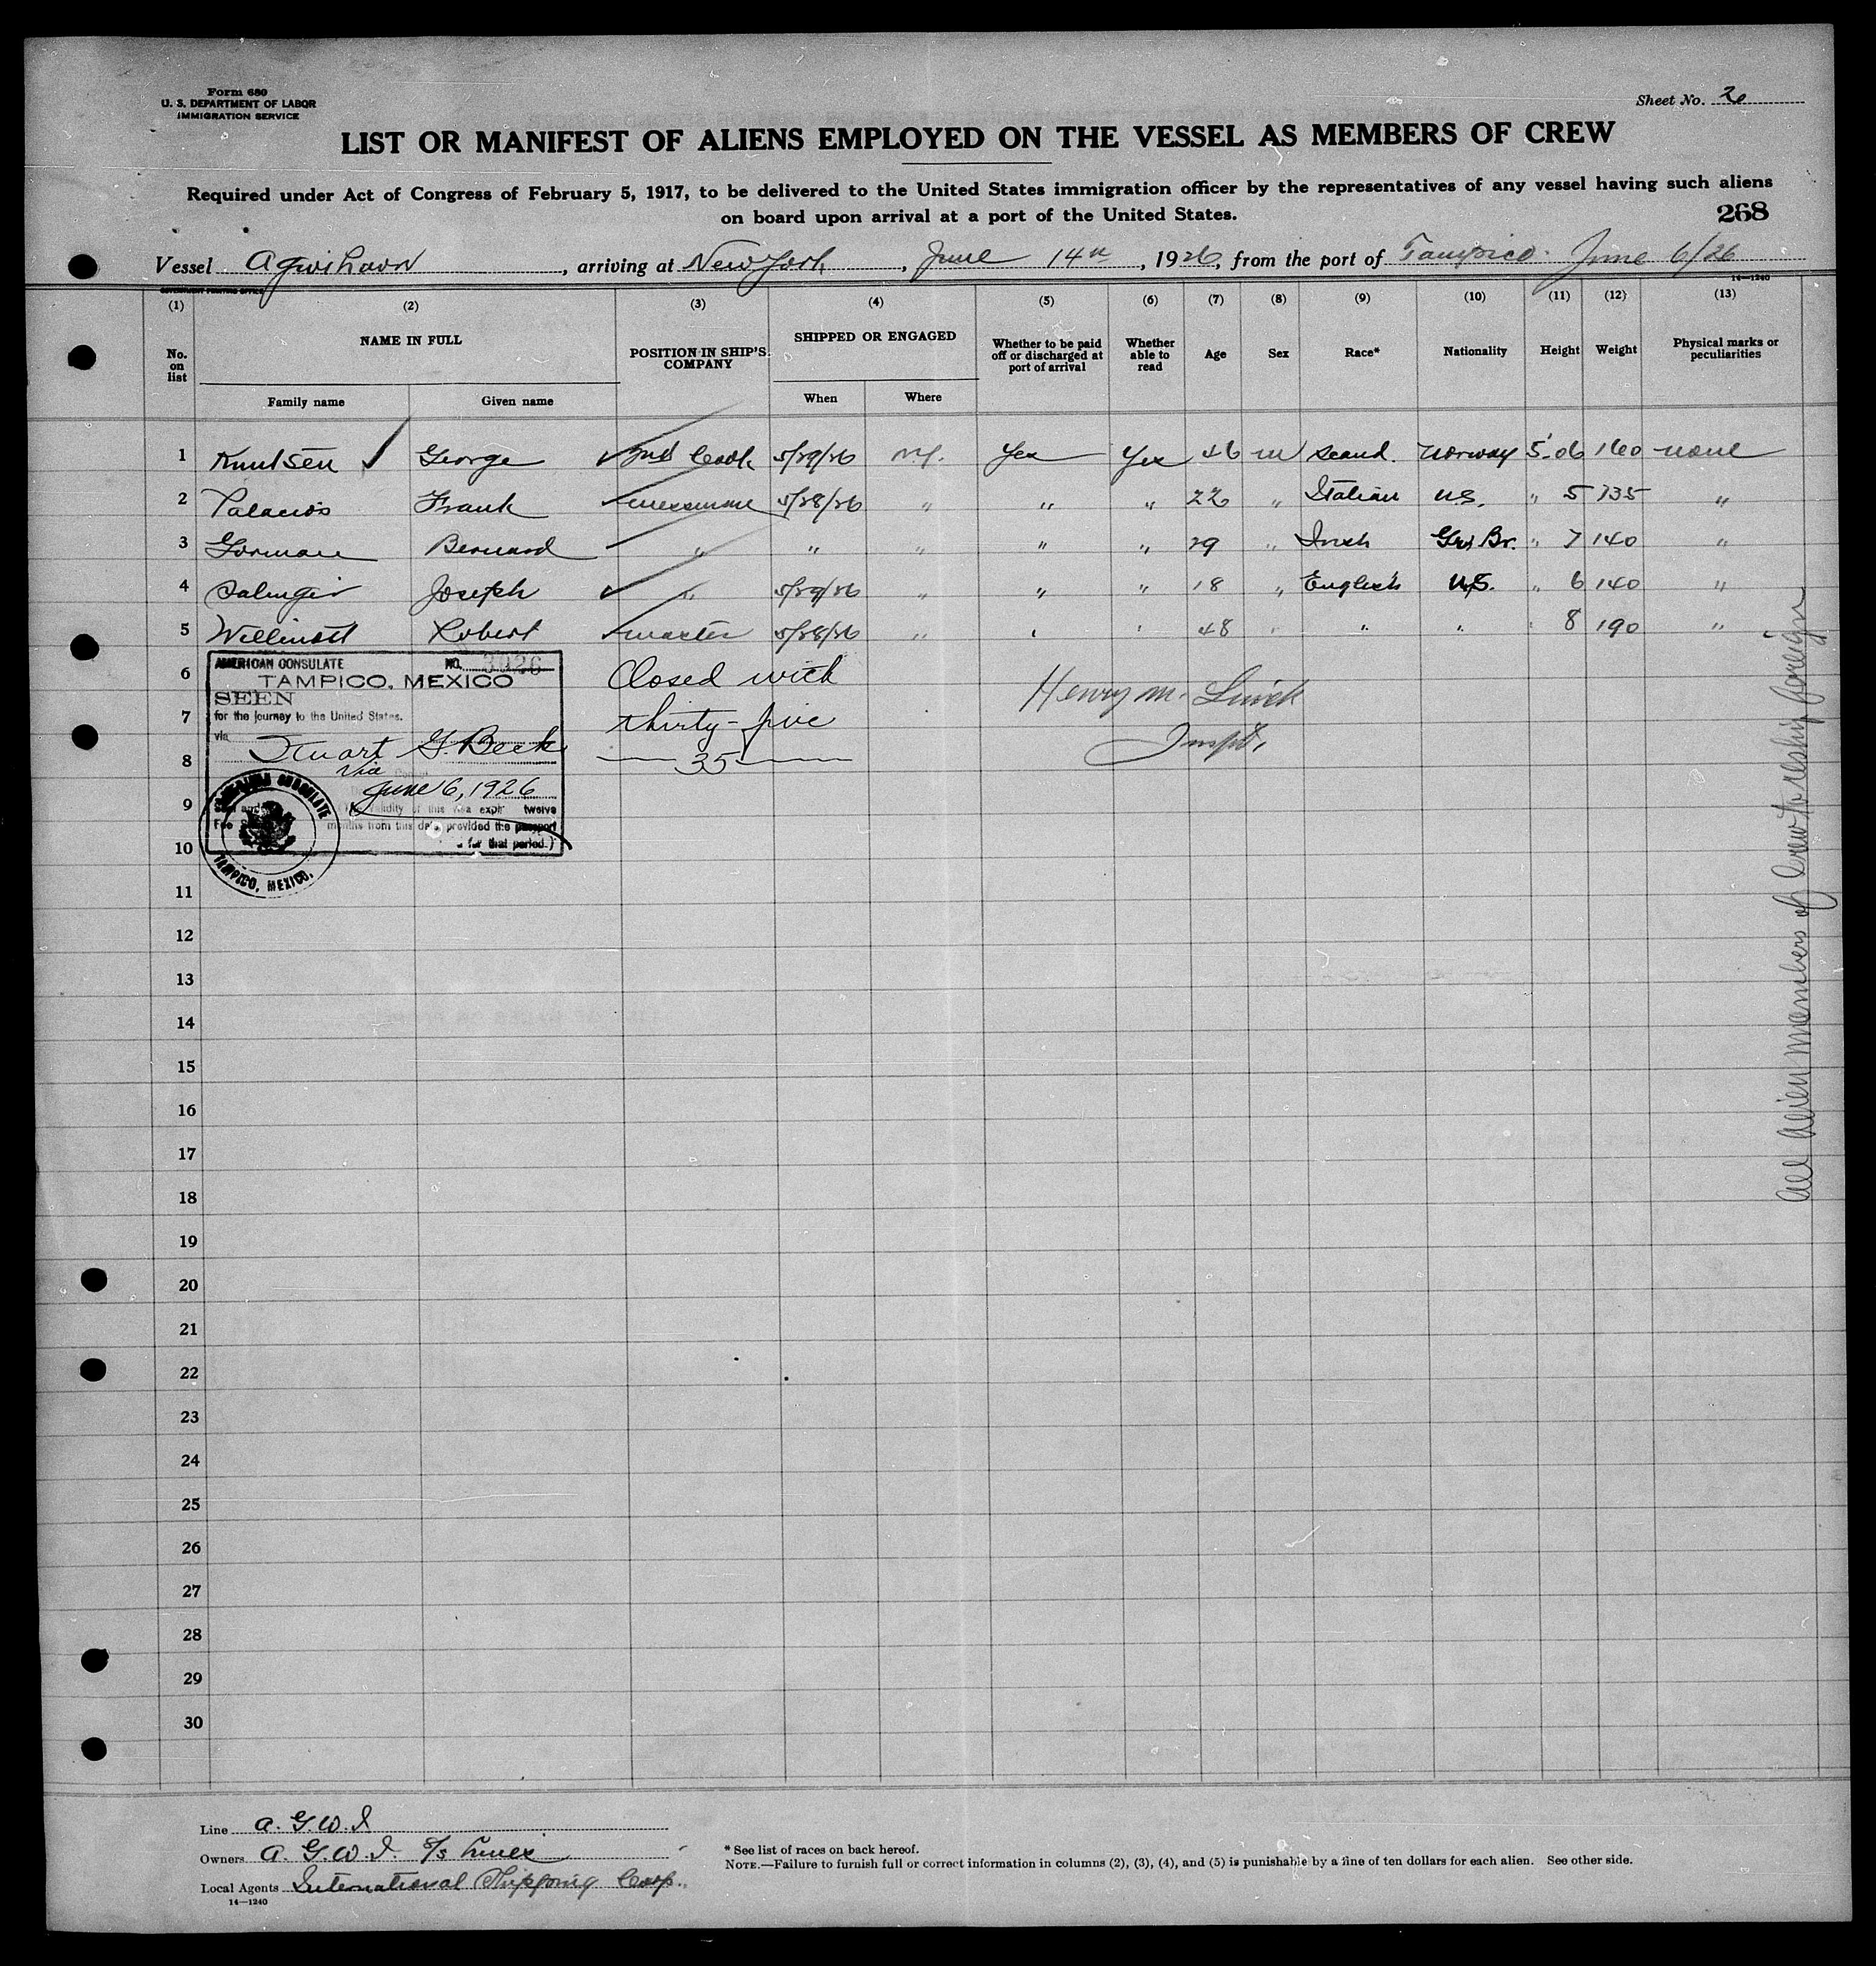 Form 680
U. S. DEPARTMENT OF LABOR
IMMIGRATION SERVICE
Sheet No. 2
LIST OR MANIFEST OF ALIENS EMPLOYED ON THE VESSEL AS MEMBERS OF CREW
Required under Act of Congress of February 5, 1917, to be delivered to the United States immigration officer by the representatives of any vessel having such aliens
on board upon arrival at a port of the United States.
268
Vessel Agwihavn, arriving at New York, June 14th, 1926, from the port of Tampico. June 6/26
GOVERNMENT PRINTING OFFICE 14—1240
(1) (2) (3) (4) (5) (6) (7) (8) (9) (10) (11) (12) (13)
No. on list NAME IN FULL POSITION IN SHIP'S COMPANY SHIPPED OR ENGAGED Whether to be paid off or discharged at port of arrival Whether able to read Age Sex Race* Nationality Height Weight Physical marks or peculiarities
Family name Given name When Where
1 Knutsen George 2nd Cook 5/29/26 N.Y. Yes Yes 46 m Scand. Norway 5'-06 160 none
2 Palacios Frank messman 5/28/26 " " " 22 " Italian U.S. " 5 135 "
3 Gorman Bernard " " " " " 29 " Irish Gr. Br. " 7 140 "
4 Salinger Joseph " 5/29/26 " " " 18 " English U.S. " 6 140 "
5 Robert master 5/28/26 " " " 48 " " " " 8 190 "
6
7
8
9
10
11
12
13
14
15
16
17
18
19
20
21
22
23
24
25
26
27
28
29
30
AMERICAN CONSULATE NO. 3926
TAMPICO, MEXICO
SEEN
for the journey to the United States.
via
Stuart G. Beck
Vice
June 6, 1926
(The validity of this visa expires twelve
months from this date, provided the passport
for that period.)
Fee
AMERICAN CONSULATE
TAMPICO, MEXICO.
Closed with
thirty-five
35
Henry M.
Inspt.
All Alien members of Crew to reship foreign
Line A. G. W. I
Owners A. G. W. I. S/S Lines
Local Agents International Shipping Corp.
14—1240
* See list of races on back hereof.
NOTE.—Failure to furnish full or correct information in columns (2), (3), (4), and (5) is punishable by a fine of ten dollars for each alien. See other side.